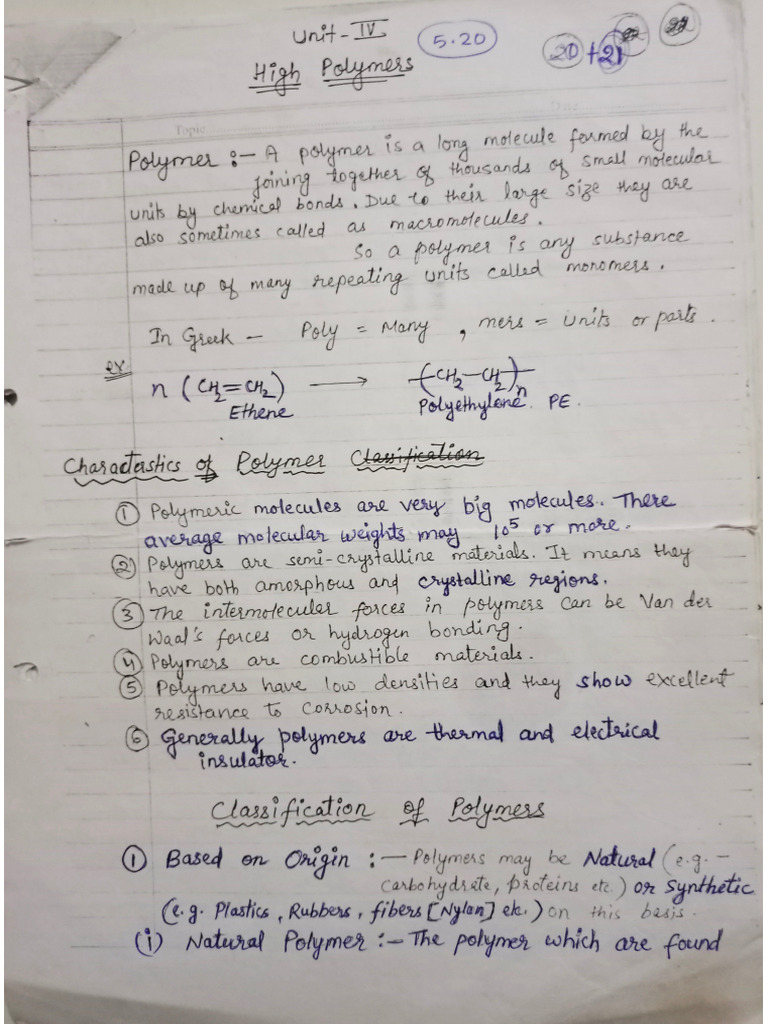 Unit-IV
5.20
20 + 21
22
High Polymers
Topic
Date
Polymer :- A polymer is a long molecule formed by the
joining together of thousands of small molecular
units by chemical bonds. Due to their large size they are
also sometimes called as macromolecules.
So a polymer is any substance
made up of many repeating units called monomers.
In Greek - Poly = Many, mers = units or parts.
ex.
n (CH2=CH2) ⟶ -(CH2-CH2)-n
Ethene Polyethylene PE.
Charactarstics of Polymer Classification
① Polymeric molecules are very big molecules. There
average molecular weights may 10^5 or more.
② Polymers are semi-crystalline materials. It means they
have both amorphous and crystalline regions.
③ The intermolecular forces in polymers can be Van der
Waal's forces or hydrogen bonding.
④ Polymers are combustible materials.
⑤ Polymers have low densities and they show excellent
resistance to corrosion.
⑥ Generally polymers are thermal and electrical
insulator.
Classification of Polymers
① Based on Origin :- Polymers may be Natural (e.g. -
Carbohydrate, proteins etc.) or Synthetic
(e.g. Plastics, Rubbers, fibers [Nylon] etc.) on this basis.
(i) Natural Polymer :- The polymer which are found